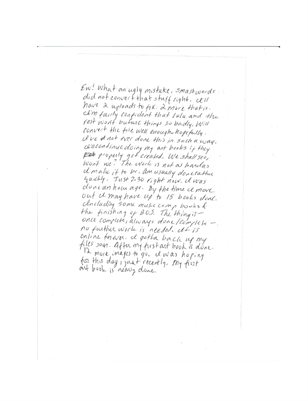 Ew! What an ugly mistake, smashwords
did not convert that stuff right. I'll
have 2 uploads to fix. 2 more that's
I'm fairly confident that Lulu and the
rest won't butcher things so badly. Will
convert the file well enough hopefully.
I've not ever done this in such a way.
discontinue doing my art books if they
properly get created. We shall see,
won't we! The work is not as hard as
I make it to be. Am usually done rather
quickly. Just 2:50 right now. I was
done an hour ago. By the time I move
out I may have up to 15 books done.
Including some make comp books &
the finishing up 2 02. The thing is -
once complete, always done/complete -
no further work is needed. It is
online forever. I gotta back up my
files soon. After my first art book is done
12 more images to go. I was hoping
for this day, just recently. My first
art book is nearly done.